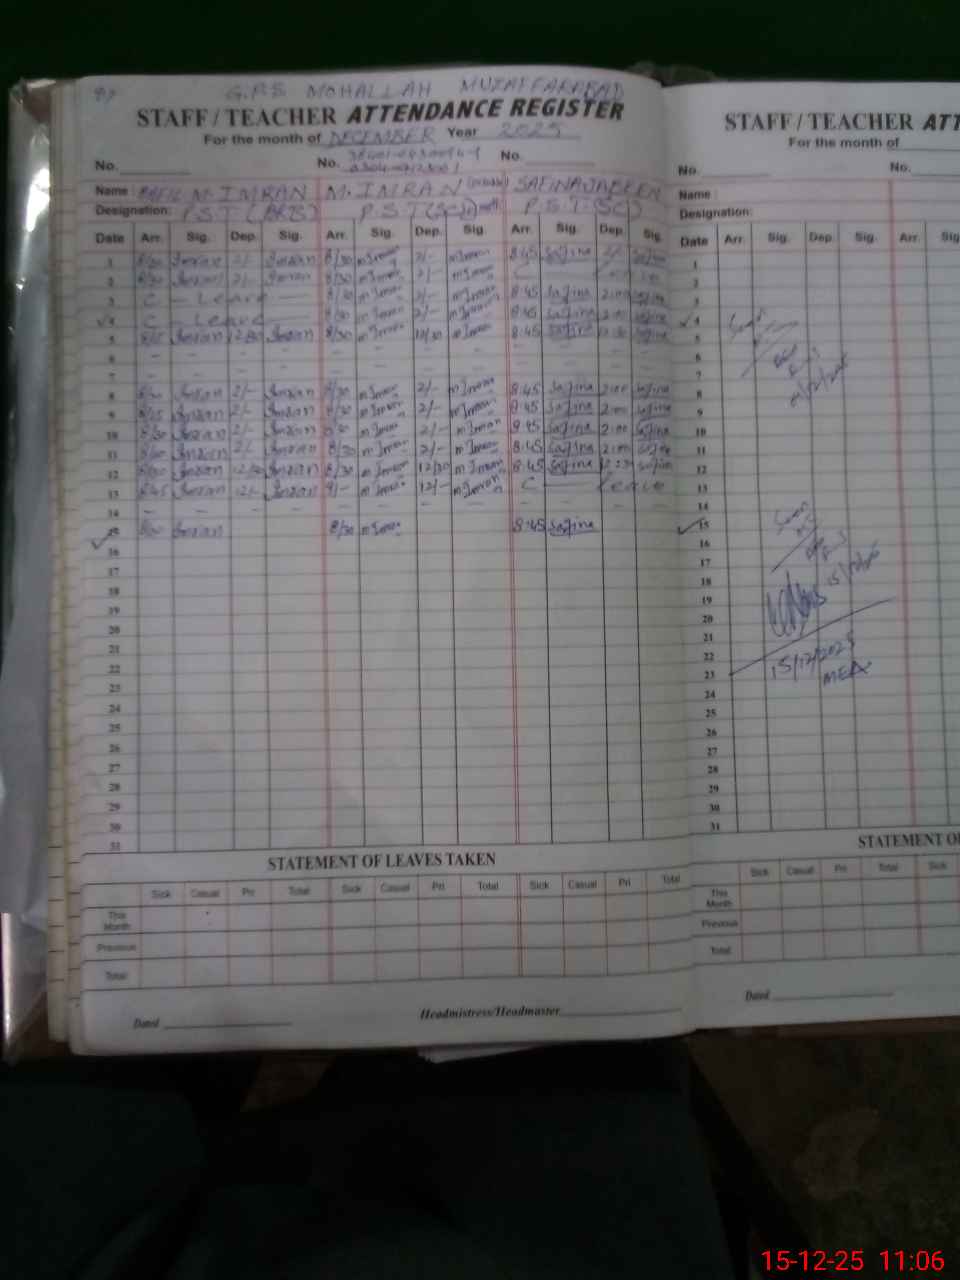 G.P.S MOHALLAH MUZAFFARABAD
STAFF / TEACHER ATTENDANCE REGISTER
For the month of DECEMBER Year 2025
No. No. No.
Name : M. IMRAN M. IMRAN SAFINA JABEEN
Designation: P.S.T P.S.T (SC) P.S.T (SC)
Date Arr. Sig. Dep. Sig. Arr. Sig. Dep. Sig. Arr. Sig. Dep. Sig.
1 8/30 Imran 2/- Imran 8/30 m Imran 2/- m Imran 8:45 Safina 2/- Safina
2 8/30 Imran 2/- Imran 8/30 m Imran 2/- m Imran C — Leave
3 C — Leave — 8/30 m Imran 2/- m Imran 8:45 Safina 2:00 Safina
4 C — Leave — 8/30 m Imran 2/- m Imran 8:45 Safina 2:00 Safina
5 Imran 12/30 Imran 8/30 m Imran 12/30 m Imran 8:45 Safina 12:30 Safina
6 – – – – – – – – – – – –
7 – – – – – – – – – – – –
8 8/30 Imran 2/- Imran 8/30 m Imran 2/- m Imran 8:45 Safina 2:00 Safina
9 Imran 2/- Imran 8/30 m Imran 2/- m Imran 8:45 Safina 2:00 Safina
10 8/30 Imran 2/- Imran 8/30 m Imran 2/- m Imran 8:45 Safina 2:00 Safina
11 8/30 Imran 2/- Imran 8/30 m Imran 2/- m Imran 8:45 Safina 2:00 Safina
12 8/30 Imran 12/30 Imran 8/30 m Imran 12/30 m Imran 8:45 Safina 12:30 Safina
13 8/45 Imran 12/- Imran 9/- m Imran 12/- m Imran C — Leave
14 – – – – – – – – – – – –
15 8/30 Imran 8/30 m Imran 8:45 Safina
16
17
18
19
20
21
22
23
24
25
26
27
28
29
30
31
STATEMENT OF LEAVES TAKEN
Sick Casual Pri Total Sick Casual Pri Total Sick Casual Pri Total
This Month
Previous
Total
Dated Headmistress/Headmaster
STAFF / TEACHER ATT
For the month of
No. No.
Name :
Designation:
Date Arr. Sig. Dep. Sig. Arr. Sig
1
2
3
4 Seen
5
6
7
8
9
10
11
12
13
14
15 Seen
16
17
18
19
20
21
22 15/12/2025
23 MEA
24
25
26
27
28
29
30
31
STATEMENT O
Sick Casual Pri Total Sick
This Month
Previous
Total
Dated
15-12-25 11:06